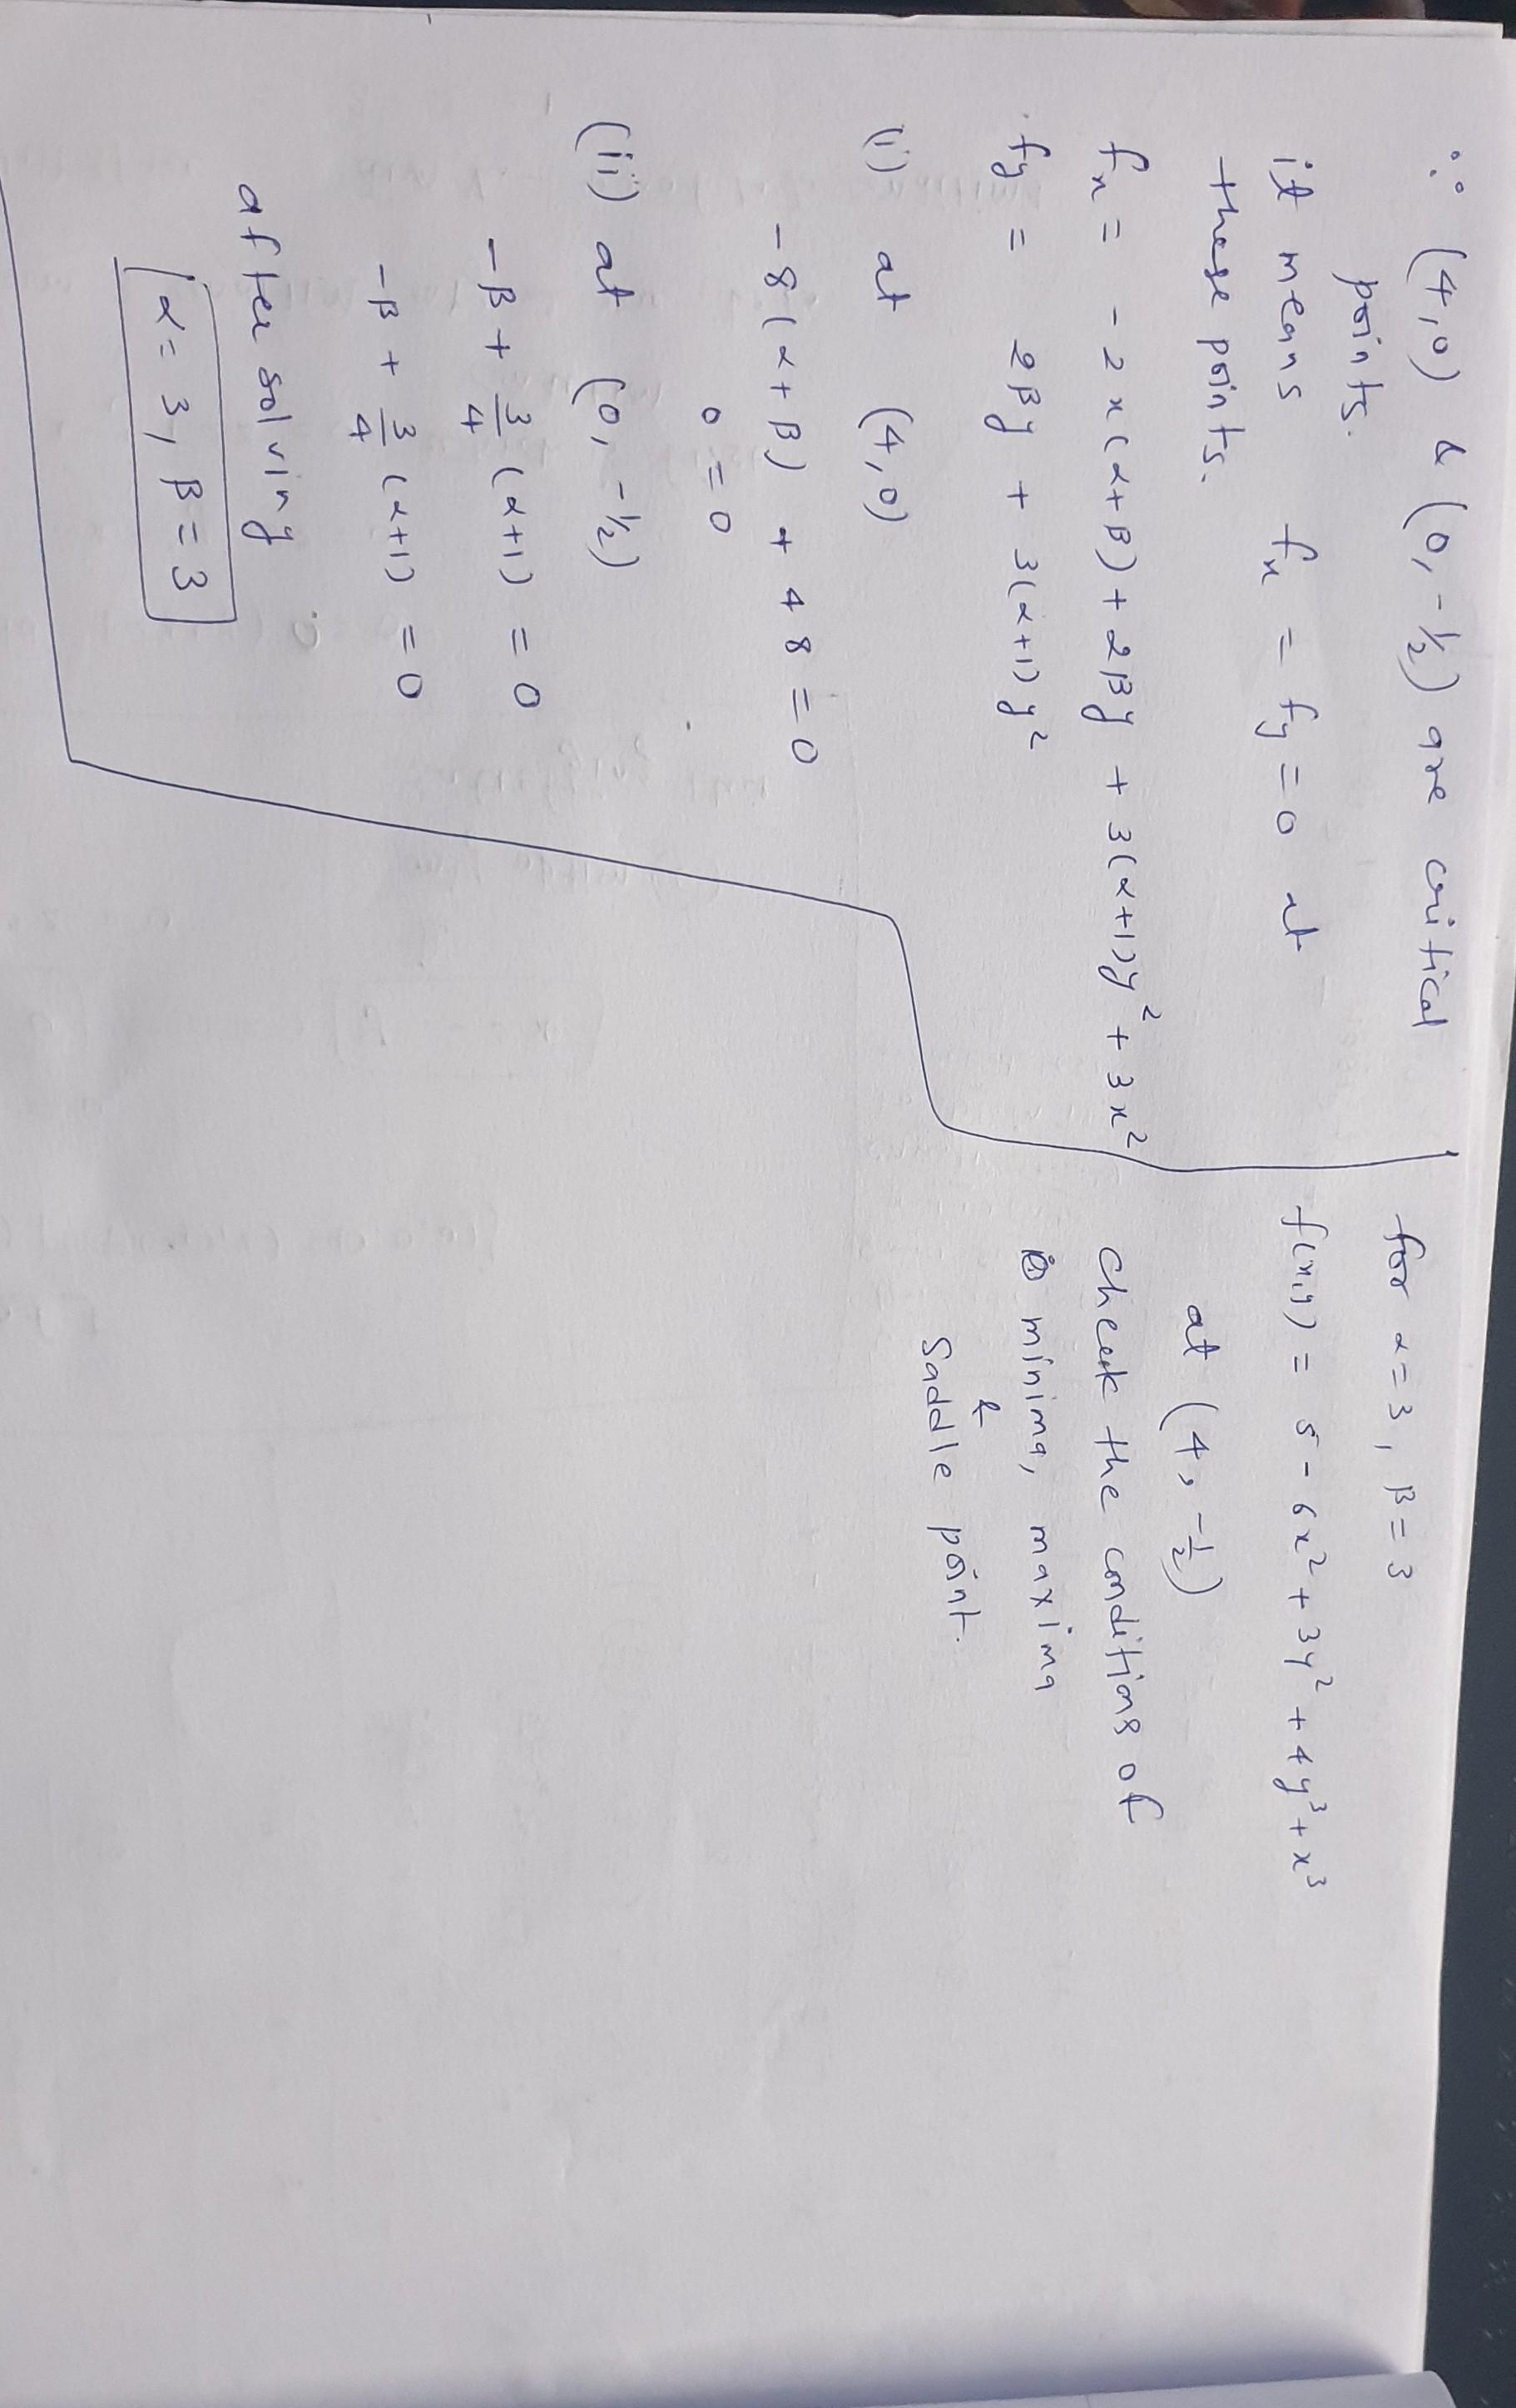 ∵ (4,0) & (0,-1/2) are critical
points.
it means fx = fy = 0 at
these points.
fx = -2x(α+β) + 2βy + 3(α+1)y² + 3x²
fy = 2βy + 3(α+1)y²
(i) at (4,0)
-8(α+β) + 48 = 0
0 = 0
(ii) at (0, -1/2)
-β + 3/4 (α+1) = 0
-β + 3/4 (α+1) = 0
after solving
α = 3, β = 3
for α = 3, β = 3
f(x,y) = 5 - 6x² + 3y² + 4y³ + x³
at (4, -1/2)
check the conditions of
minima, maxima
&
saddle point.